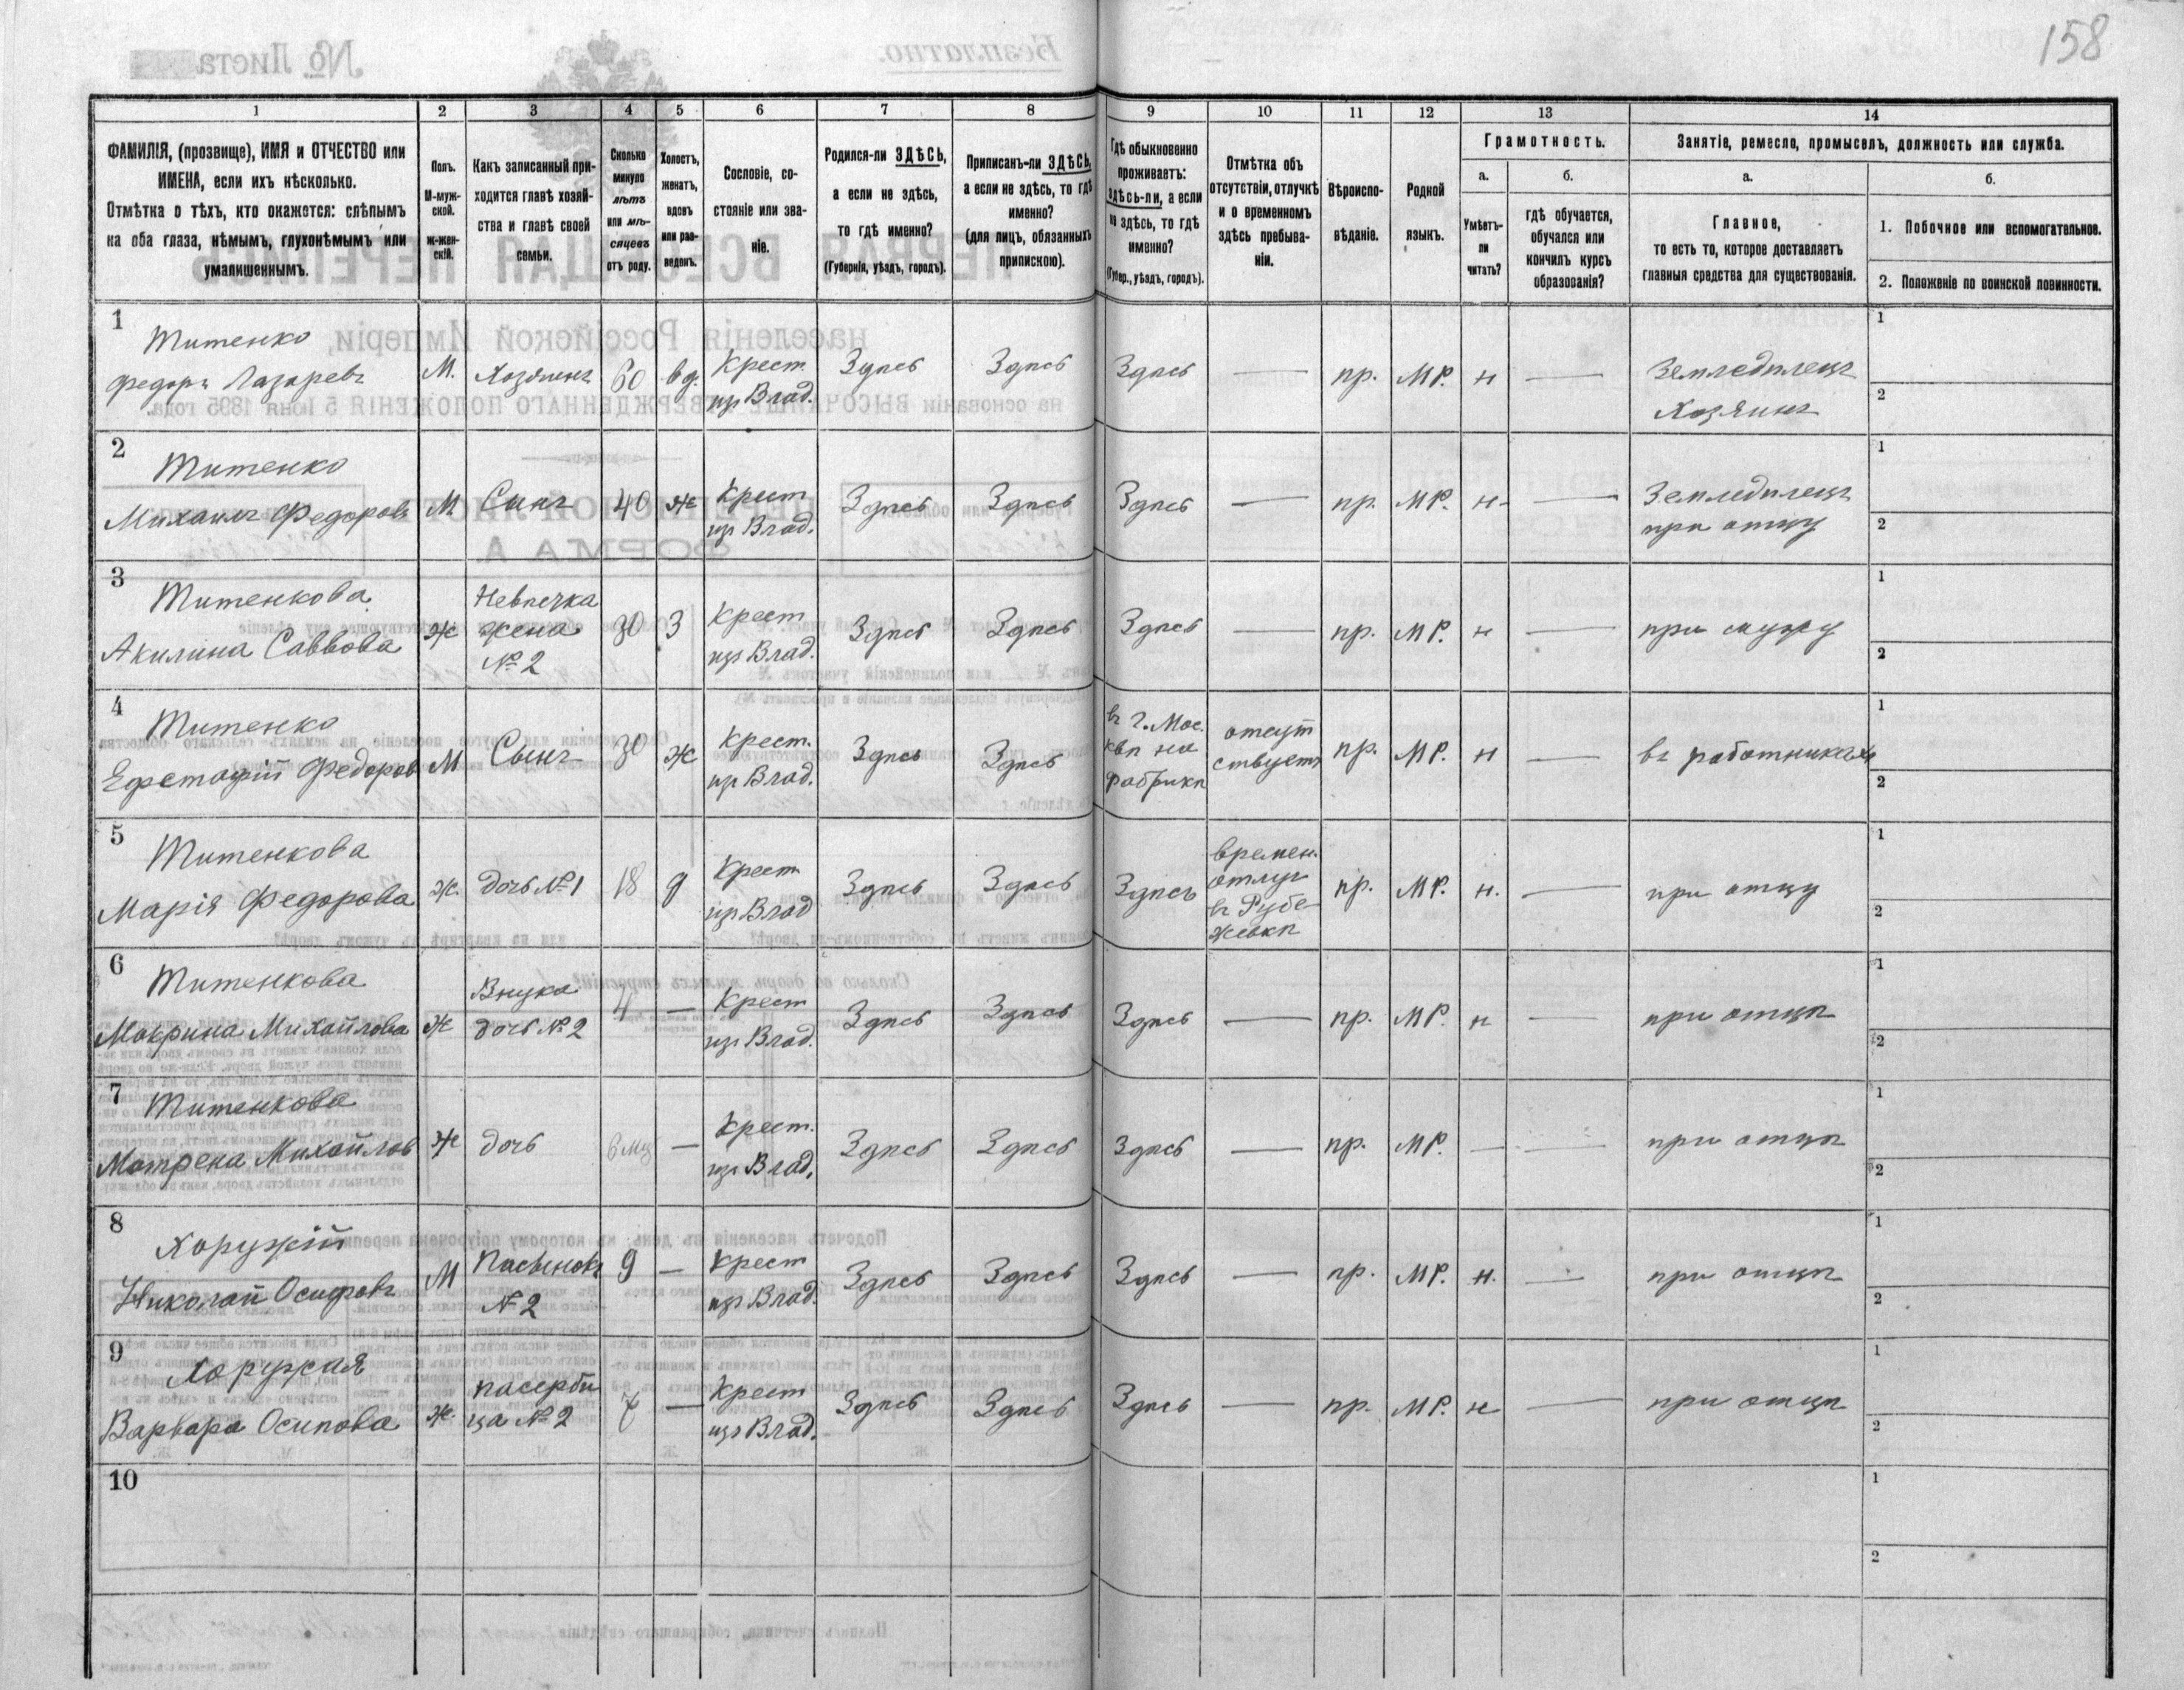 158
1 2 3 4 5 6 7 8 9 10 11 12 13 14
ФАМИЛІЯ, (прозвище), ИМЯ и ОТЧЕСТВО или
ИМЕНА, если ихъ нѣсколько.
Отмѣтка о тѣхъ, кто окажется: слѣпымъ
на оба глаза, нѣмымъ, глухонѣмымъ или
умалишеннымъ.
Полъ.
М-муж-
ской.
ж-жен-
скій.
Какъ записанный при-
ходится главѣ хозяй-
ства и главѣ своей
семьи.
Сколько
минуло
лѣтъ
или мѣ-
сяцевъ
отъ роду.
Холостъ,
женатъ,
вдовъ
или раз-
веденъ.
Сословіе, со-
стояніе или зва-
ніе.
Родился-ли ЗДѢСЬ,
а если не здѣсь,
то гдѣ именно?
(Губернія, уѣздъ, городъ).
Приписанъ-ли ЗДѢСЬ,
а если не здѣсь, то гдѣ
именно?
(для лицъ, обязанныхъ
припискою).
Гдѣ обыкновенно
проживаетъ:
здѣсь-ли, а если
не здѣсь, то гдѣ
именно?
(Губер., уѣздъ, городъ).
Отмѣтка объ
отсутствіи, отлучкѣ
и о временномъ
здѣсь пребыва-
ніи.
Вѣроиспо-
вѣданіе.
Родной
языкъ.
Грамотность.
а.
Умѣетъ-
ли
читать?
б.
гдѣ обучается,
обучался или
кончилъ курсъ
образованія?
Занятіе, ремесло, промыселъ, должность или служба.
а.
Главное,
то есть то, которое доставляетъ
главныя средства для существованія.
б.
1. Побочное или вспомогательное.
2. Положеніе по воинской повинности.
1
Титенко
Федоръ Лазаревъ
М.
Хозяинъ
60
вд.
Крест.
из Влад.
Здѣсь
Здѣсь
Здѣсь
—
пр.
МР.
н
—
Земледѣлецъ
Хозяинъ
1
2
2
Титенко
Михаилъ Федоровъ
М
Сынъ
40
ж
Крест
из Влад.
Здѣсь
Здѣсь
Здѣсь
—
пр.
МР.
н
—
Земледѣлецъ
при отцу
1
2
3
Титенкова
Акилина Саввова
ж
Невѣстка
жена
№ 2
30
З
Крест
из Влад.
Здѣсь
Здѣсь
Здѣсь
—
пр.
МР.
н
—
при мужу
1
2
4
Титенко
Ефстафій Федоров
М
Сынъ
30
ж
Крест.
из Влад.
Здѣсь
Здѣсь
въ г. Мос.
квѣ на
фабрикѣ
отсут
ствуетъ
пр.
МР.
н
—
въ работникахъ
1
2
5
Титенкова
Марія Федорова
ж.
дочь № 1
18
д
Крест
из Влад
Здѣсь
Здѣсь
Здѣсь
времен.
отлуч
въ Рубе-
жевкѣ
пр.
МР.
н.
—
при отцу
1
2
6
Титенкова
Макрина Михайлова
ж
Внука
дочь № 2
4
—
Крест
из Влад.
Здѣсь
Здѣсь
Здѣсь
—
пр.
МР.
н
—
при отцѣ
1
2
7
Титенкова
Матрена Михайлов
ж
дочь
6 мц
—
Крест.
из Влад.
Здѣсь
Здѣсь
Здѣсь
—
пр.
МР.
—
—
при отцѣ
1
2
8
Хоружій
Николай Осиповъ
М
Пасынокъ
№ 2
9
—
Крест
из Влад.
Здѣсь
Здѣсь
Здѣсь
—
пр.
МР.
н.
—
при отцѣ
1
2
9
Хоружая
Варвара Осипова
ж.
пасерби
ца № 2
7
—
Крест
из Влад.
Здѣсь
Здѣсь
Здѣсь
—
пр.
МР.
н
—
при отцѣ
1
2
10
1
2